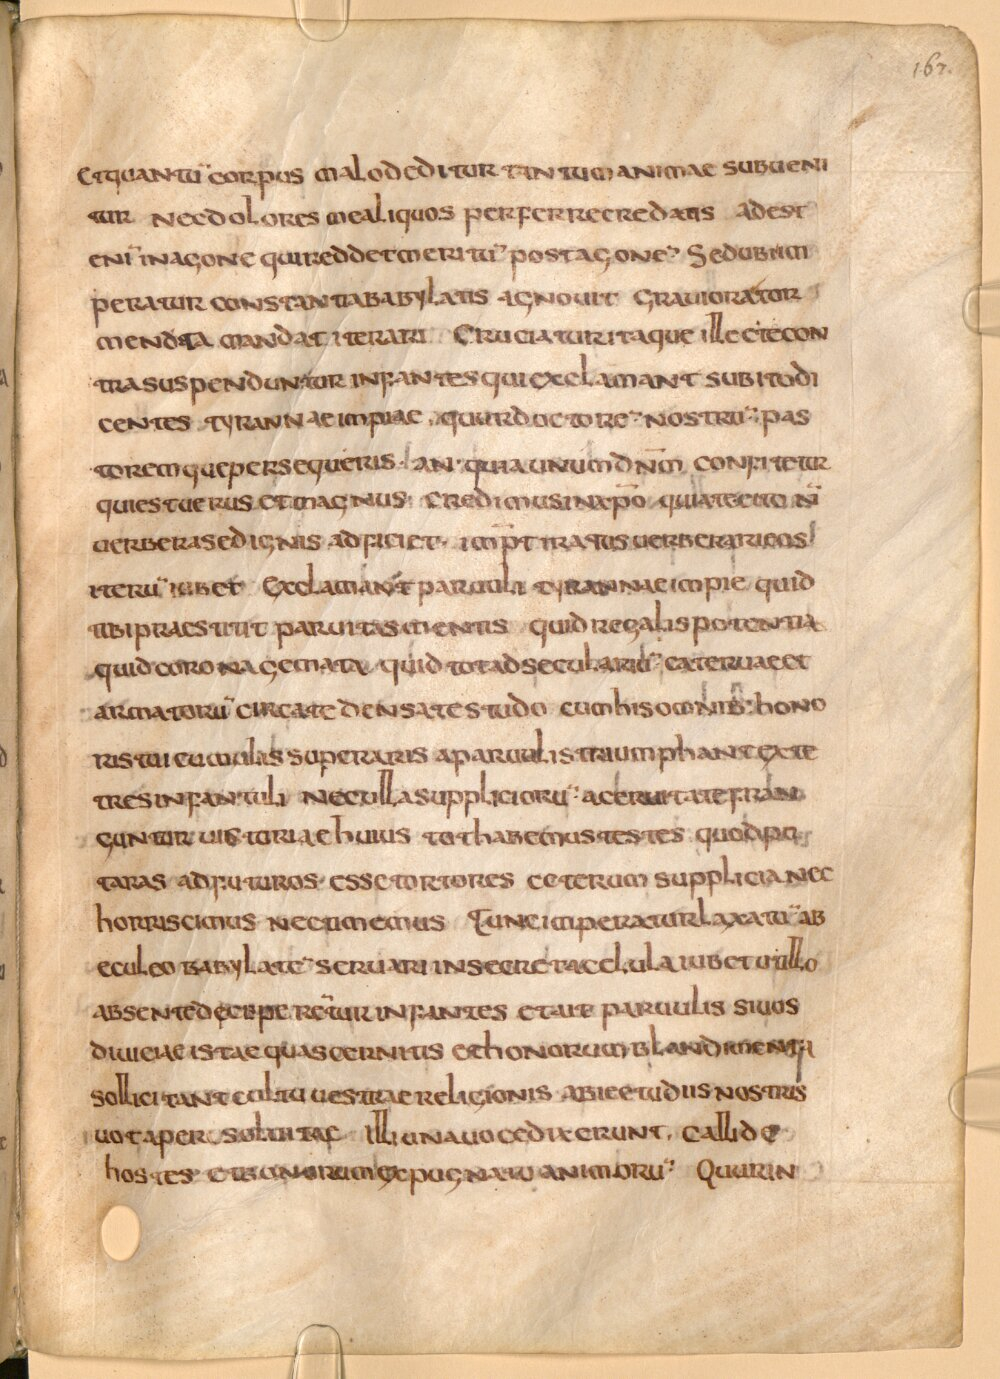 167.
Et quantū corpus malo deditur tantum animae subueni
tur nec dolores me aliquos perferre credatis adest
enī in agone qui reddet meritū post agonē Sed ubi im
peratur constantia babylatis agnouit grauiora tor
menta mandat iterari Cruciatur itaque ille et e con
tra suspenduntur infantes qui exclamant subito di
centes tyrannae impiae quur doctorē nostrū pas
toremque persequeris an quia unum dn̄m confitetur
qui est uerus et magnus Credimus in xp̄o quia te cito nō
uerbera sed ignis adficiet imp̄r iratus uerberari eos
iterū iubet Exclamant paruuli tyrannae impie quid
tibi praestitit paruitas mentis quid regalis potentia
quid corona gemata quid tot ad seculariū cateruae et
armatorū circa te densa testudo cum his omnib: hono
ris tui cumulis superaris a paruulis triumphant ex te
tres infantuli nec ulla suppliciorū aceruitate fran
guntur uictoriae huius tot habemus testes quod pu
taras ad futuros esse tortores ceterum supplicia nec
horriscimus nec timemus Tunc imperatur laxatū ab
eculeo babylatē seruari in secreta celula iubet ut illo
absente deci perētur infantes et ait paruulis si uos
diuiciae istae quas cernitis et honorum blandimenta
sollicitant cultū uestrae religionis abiectu diis nostris
uota persoluitae Illi una uoce dixerunt callide
hostes et bonorum expugnator animorū Quur in